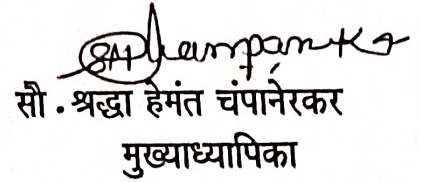 सौ . श्रद्धा हेमंत चंपानेरकर
मुख्याध्यापिका